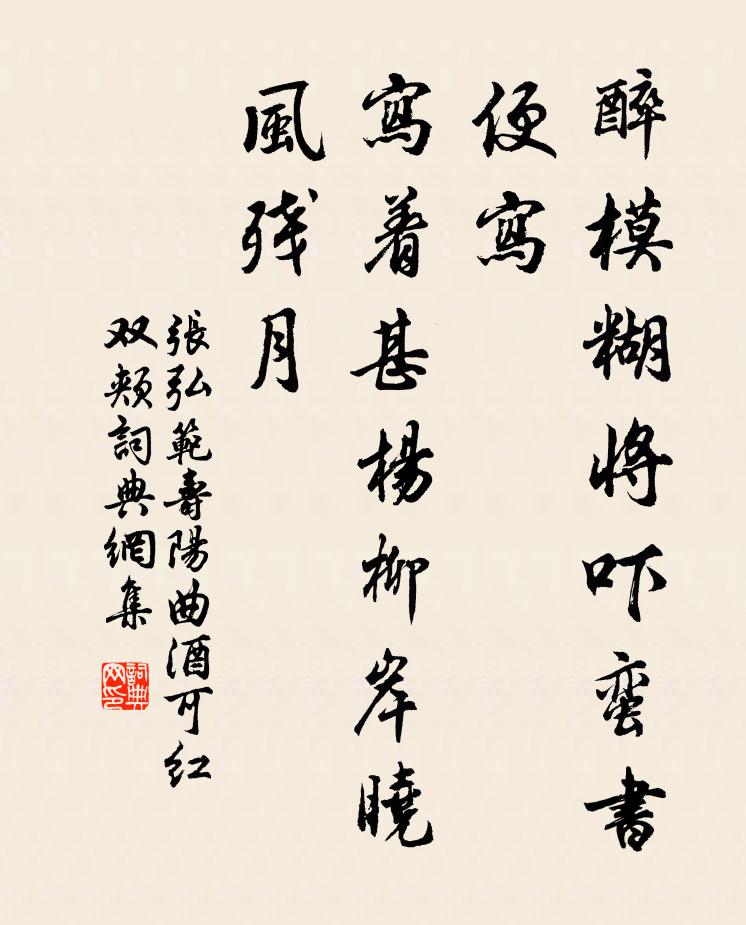 醉模糊將吓蛮書
便寫
寫着甚楊柳岸曉
風残月
張弘範壽陽曲酒可红
双頰詞典網集
詞典网印